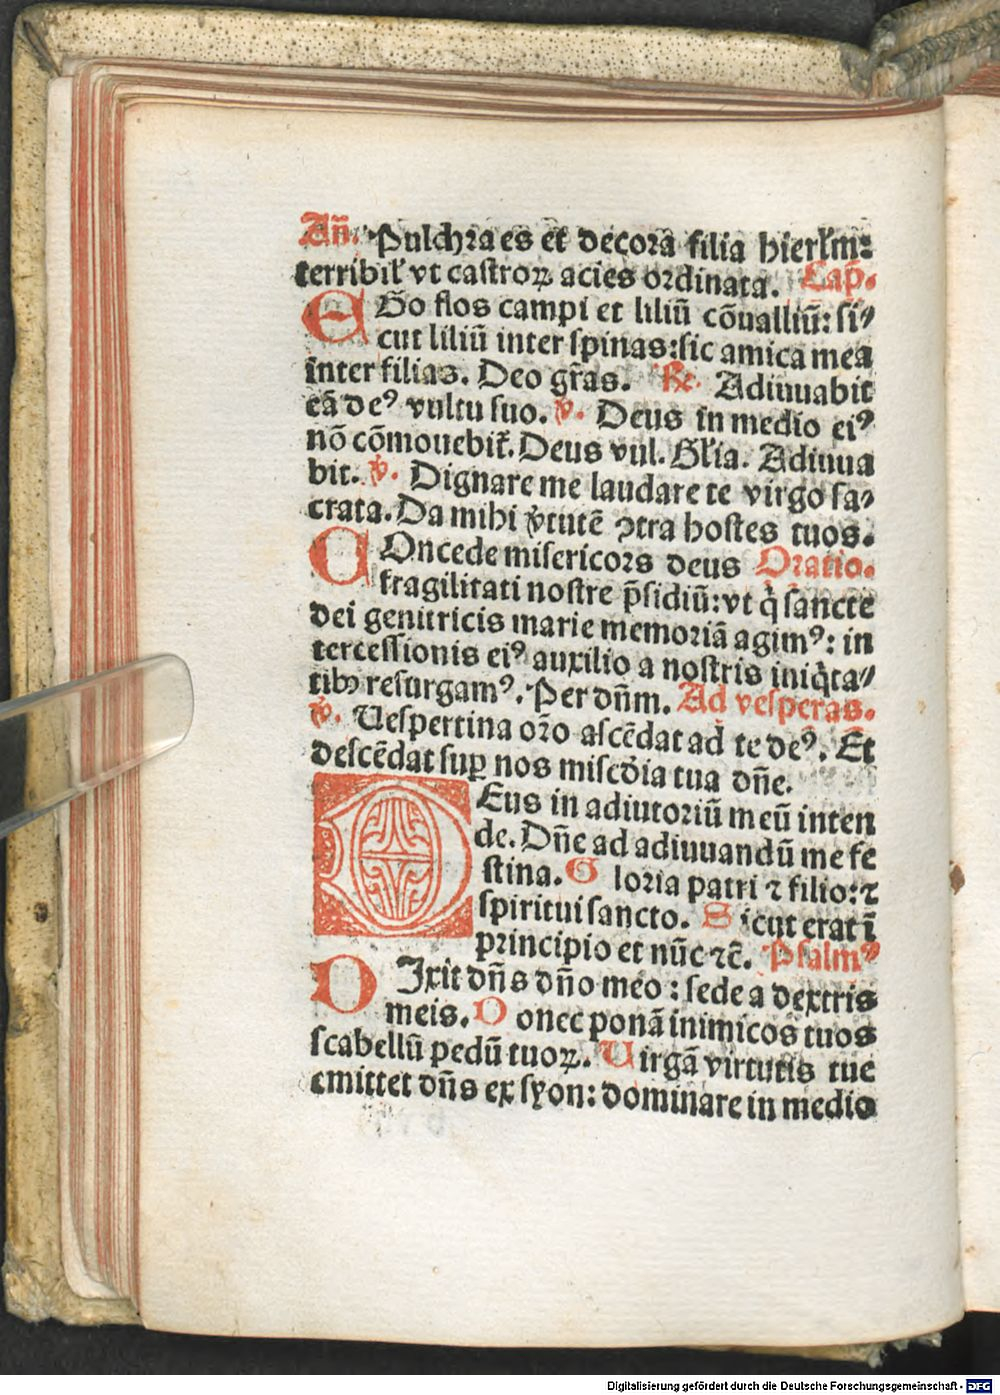 Añ. Pulchra es et decora filia hierłm:
terribił vt castroꝝ acies ordinata. Cap̃.
EGo flos campi et liliū cōualliū: si⸗
cut liliū inter spinas: sic amica mea
inter filias. Deo gr̃as. ℟. Adiuuabit
eā deꝰ vultu suo. ℣. Deus in medio eiꝰ
nō cōmouebit̃. Deus vul. Gł̃ia. Adiuua
bit. ℣. Dignare me laudare te virgo sa⸗
crata. Da mihi v̾tutē ꝯtra hostes tuos.
COncede misericors deus Oratio.
fragilitati nostre p̄sidiū: vt q̇ sancte
dei genitricis marie memoriā agimꝰ: in
tercessionis eiꝰ auxilio a nostris iniq̇ta⸗
tibꝫ resurgamꝰ. Per dñm. Ad vesperas.
℣. Uespertina or̃o ascēdat ad te deꝰ. Et
descēdat suꝑ nos misc̃dia tua dñe.
DEus in adiutoriū meū inten
de. Dñe ad adiuuandū me fe
stina. Gloria patri ⁊ filio: ⁊
spiritui sancto. Sicut erat ī
principio et nūc ⁊c̃. Psalmꝰ
DIxit dñs dño meo: sede a dextris
meis. Donec ponā inimicos tuos
scabellū pedū tuoꝝ. Uirgā virtutis tue
emittet dñs ex syon: dominare in medio
Digitalisierung gefördert durch die Deutsche Forschungsgemeinschaft - DFG